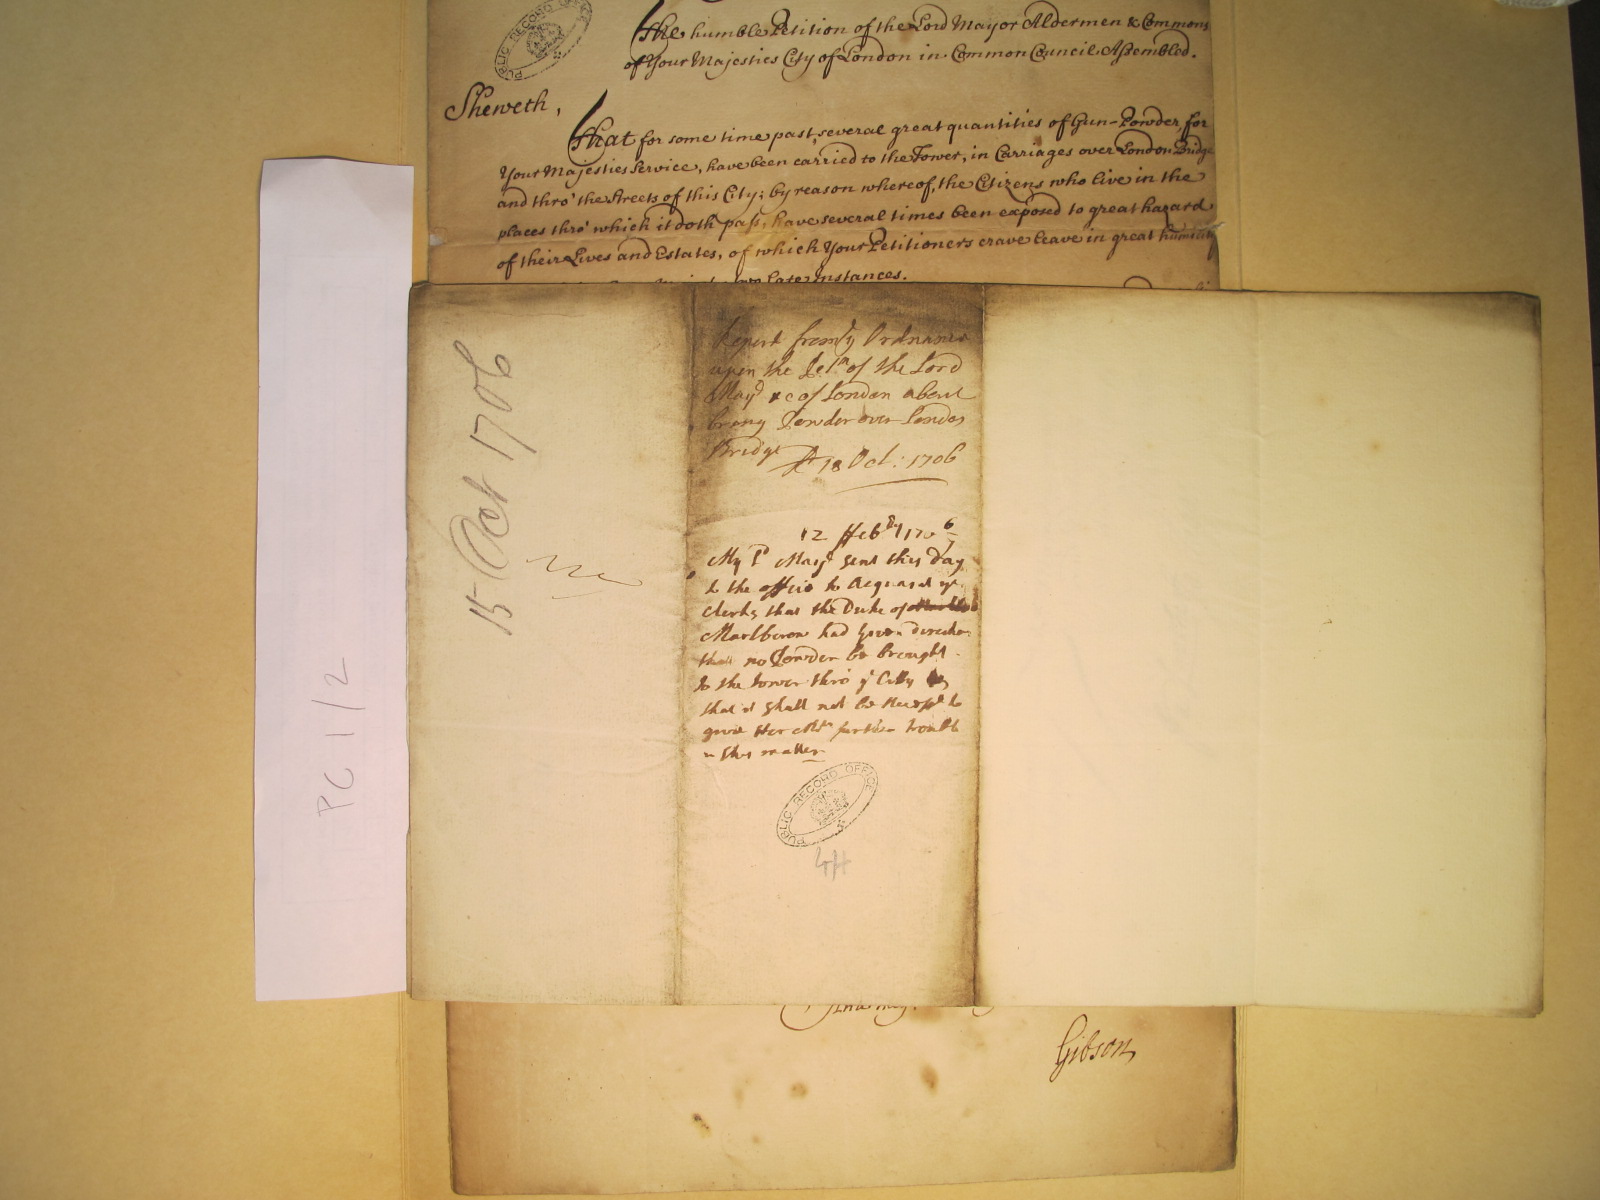 The humble Petition of the Lord Mayor Aldermen & Commons
of Your Majesties City of London in Common Council Assembled.
Sheweth,
That for some time past, several great quantities of Gun-Powder, for
Your Majesties Service, have been carried to the Tower, in Carriages over London Bridge
and thro' the Streets of this City; by reason whereof, the Citizens who live in the
places thro' which it doth pass, have several times been exposed to great hazard
of their Lives and Estates, of which Your Petitioners crave leave in great humility
late Instances.
Report from ye Ordnance
upon the Petn of the Lord
Mayr &c of London about
bring Powder over London
Bridge
Rd 18 Oct: 1706
12 ffebry 1706/7
My Ld Mayr sent this day
to the office to Acquaint ye
Clerks that the Duke of
Marlborow had given direction
that no Powder be brought
to the tower thro' ye Citty
that it shall not be Necessy to
give Her Maty further trouble
in this matter
PUBLIC RECORD OFFICE
4H
15 Oct 1706
PC 1/2
PUBLIC RECORD OFFICE
Gibson